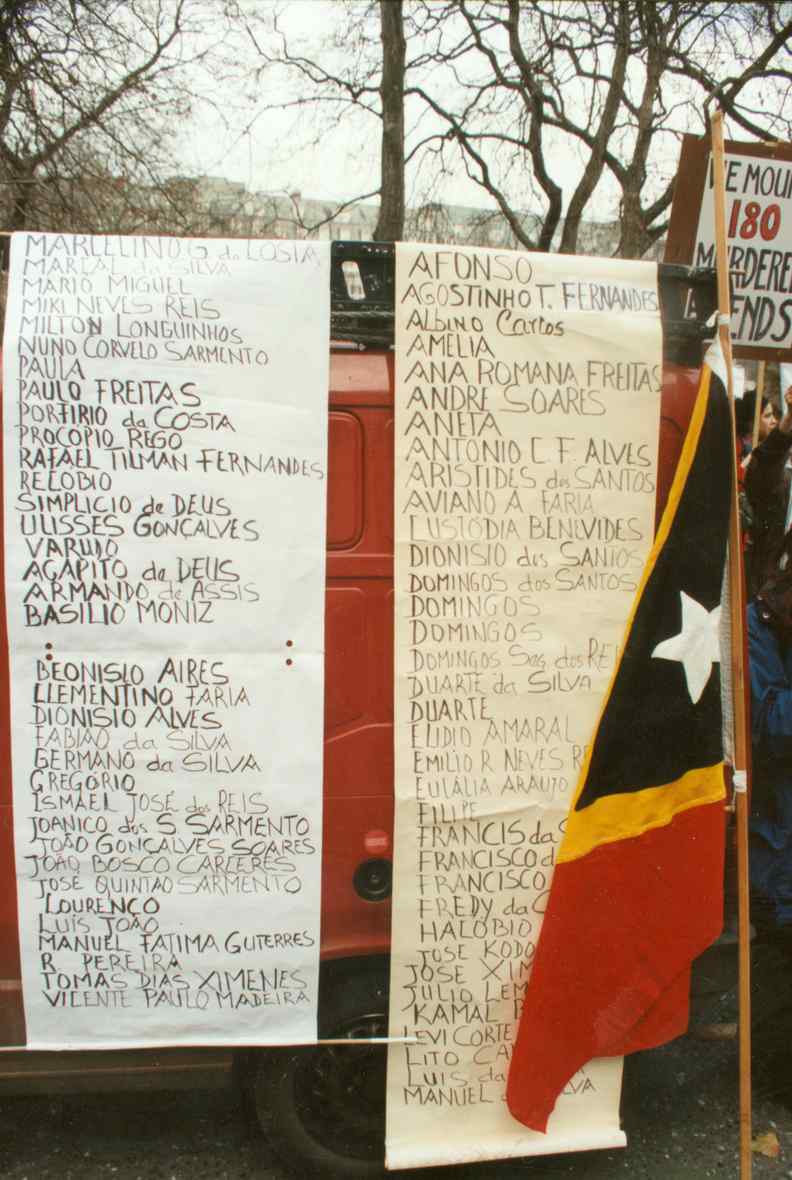 MARCELINO G da COSTA
MARÇAL da SILVA
MARIO MIGUEL
MIKI NEVES REIS
MILTON LONGUINHOS
NUNO CORVELO SARMENTO
PAULA
PAULO FREITAS
PORFIRIO da COSTA
PROCOPIO REGO
RAFAEL TILMAN FERNANDES
RECOBIO
SIMPLICIO de DEUS
ULISSES GONÇALVES
VARUDO
AGAPITO de DEUS
ARMANDO de ASSIS
BASILIO MONIZ
BEONISIO AIRES
CLEMENTINO FARIA
DIONISIO ALVES
FABIÃO da SILVA
GERMANO da SILVA
GREGORIO
ISMAEL JOSÉ dos REIS
JOANICO dos S. SARMENTO
JOÃO GONÇALVES SOARES
JOÃO BOSCO CARCERES
JOSE QUINTAO SARMENTO
LOURENCO
LUIS JOÃO
MANUEL FATIMA GUTERRES
R. PEREIRA
TOMAS DIAS XIMENES
VICENTE PAULO MADEIRA
AFONSO
AGOSTINHO T. FERNANDES
Albino Carlos
AMELIA
ANA ROMANA FREITAS
ANDRE SOARES
ANETA
ANTONIO C.F. ALVES
ARISTIDES dos SANTOS
AVIANO A FARIA
CUSTÓDIA BENEVIDES
DIONISIO dos SANTOS
DOMINGOS dos SANTOS
DOMINGOS
DOMINGOS
DOMINGOS Sag dos REI
DUARTE da SILVA
DUARTE
ELIDIO AMARAL
EMILIO R NEVES RE
EULÁLIA ARAUJO
FILIPE
FRANCIS da
FRANCISCO d
FRANCISCO
FREDY da C
HALOBIO
JOSE KODO
JOSE XIM
JULIO LEM
KAMAL
LEVI CORTE
LITO CA
LUIS da
MANUEL LVA
WE MOU
180
MURDERE
ENDS